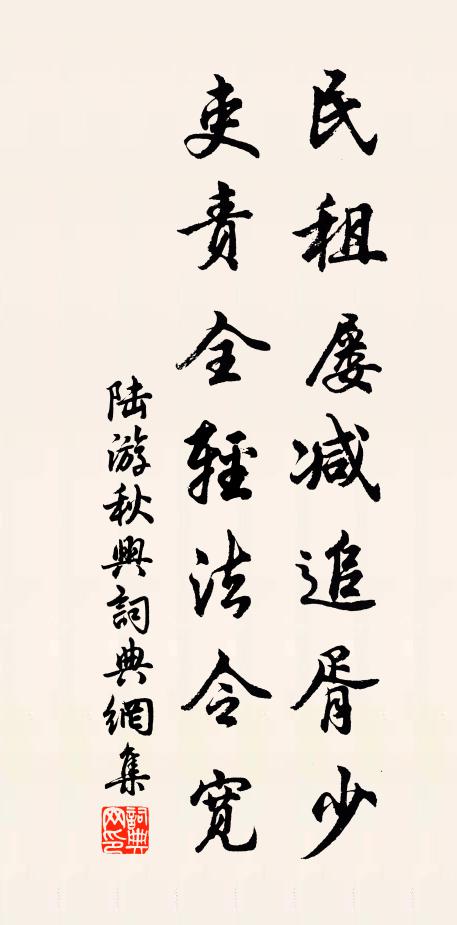 民租屡减追胥少
吏责全轻法令宽
陆游秋興詞典網集
詞典网印